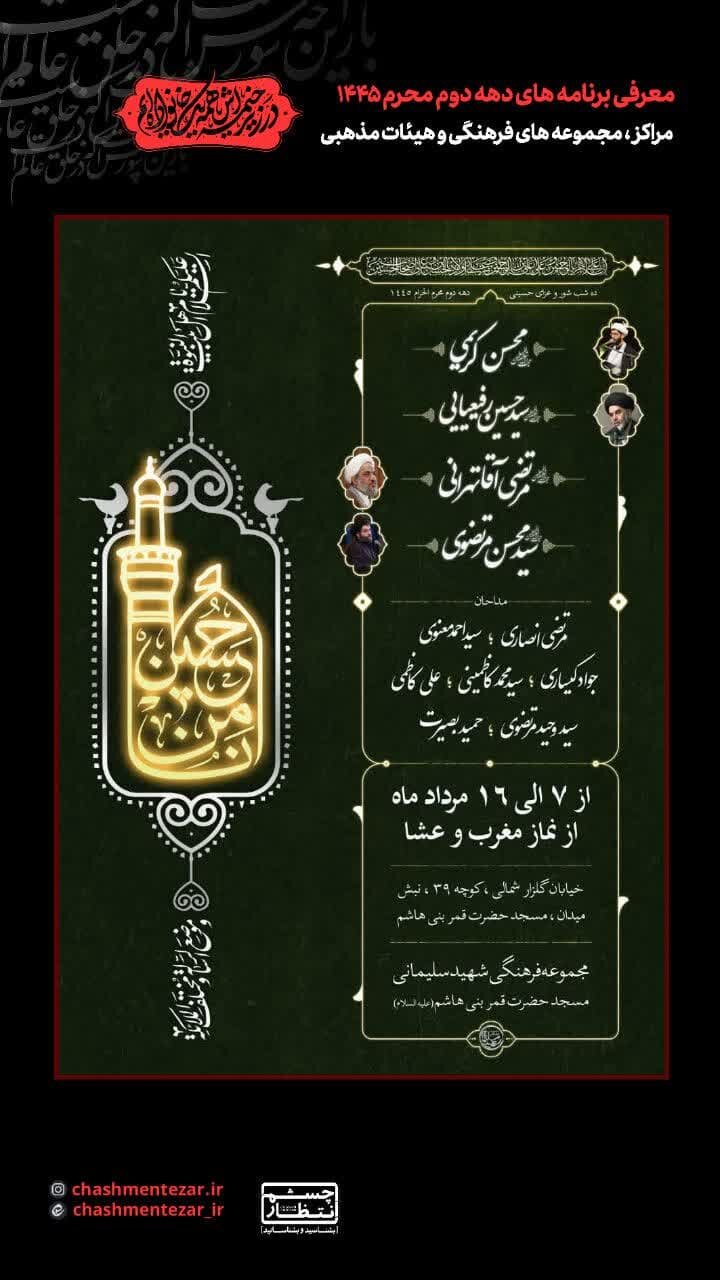 معرفی برنامه های دهه دوم محرم ۱۴۴۵
مراکز ، مجموعه های فرهنگی و هیئات مذهبی
ده شب شور و عزای حسینی
دهه دوم محرم الحرام ۱۴۴۵
محسن کریمی
سید حسین رفیعیایی
مرتضی آقاتهرانی
سید محسن مرتضوی
مداحان
مرتضی انصاری ؛ سید احمد معنوی
جواد کیساری ؛ سید محمد کاظمینی ؛ علی کاظمی
سید وحید مرتضوی ؛ حمید بصیرت
از ۷ الی ۱۶ مرداد ماه
از نماز مغرب و عشا
خیابان گلزار شمالی ، کوچه ۳۹ ، نبش
میدان ، مسجد حضرت قمر بنی هاشم
مجموعه فرهنگی شهید سلیمانی
مسجد حضرت قمر بنی هاشم (علیه السلام)
السلام علیکم یا اهل بیت النبوة
حسین
من
و موضع الرسالة و مختلف الملائکة
chashmentezar.ir
chashmentezar_ir
چشم
انتظار
[بشناسید و بشناسانید]